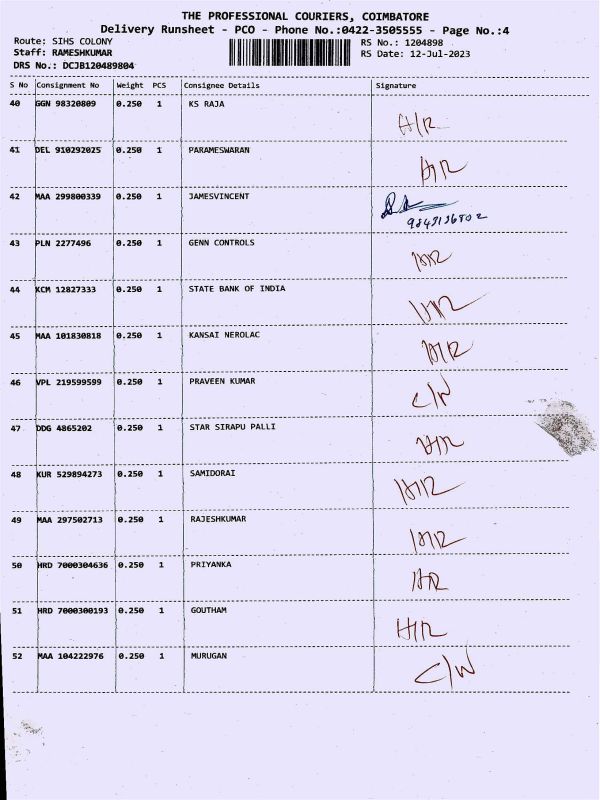 THE PROFESSIONAL COURIERS, COIMBATORE
Delivery Runsheet - PCO - Phone No.:0422-3505555 - Page No.:4
Route: SIHS COLONY RS No.: 1204898
Staff: RAMESHKUMAR RS Date: 12-Jul-2023
DRS No.: DCJB120489804
S No Consignment No Weight PCS Consignee Details Signature
40 GGN 98320809 0.250 1 KS RAJA
H/R
41 DEL 910292025 0.250 1 PARAMESWARAN
H/R
42 MAA 299800339 0.250 1 JAMESVINCENT
43 PLN 2277496 0.250 1 GENN CONTROLS
44 KCM 12827333 0.250 1 STATE BANK OF INDIA
45 MAA 101830818 0.250 1 KANSAI NEROLAC
46 VPL 219599599 0.250 1 PRAVEEN KUMAR
C/W
47 DDG 4865202 0.250 1 STAR SIRAPU PALLI
48 KUR 529894273 0.250 1 SAMIDORAI
49 MAA 297502713 0.250 1 RAJESHKUMAR
50 HRD 7000304636 0.250 1 PRIYANKA
51 HRD 7000300193 0.250 1 GOUTHAM
52 MAA 104222976 0.250 1 MURUGAN
C/W